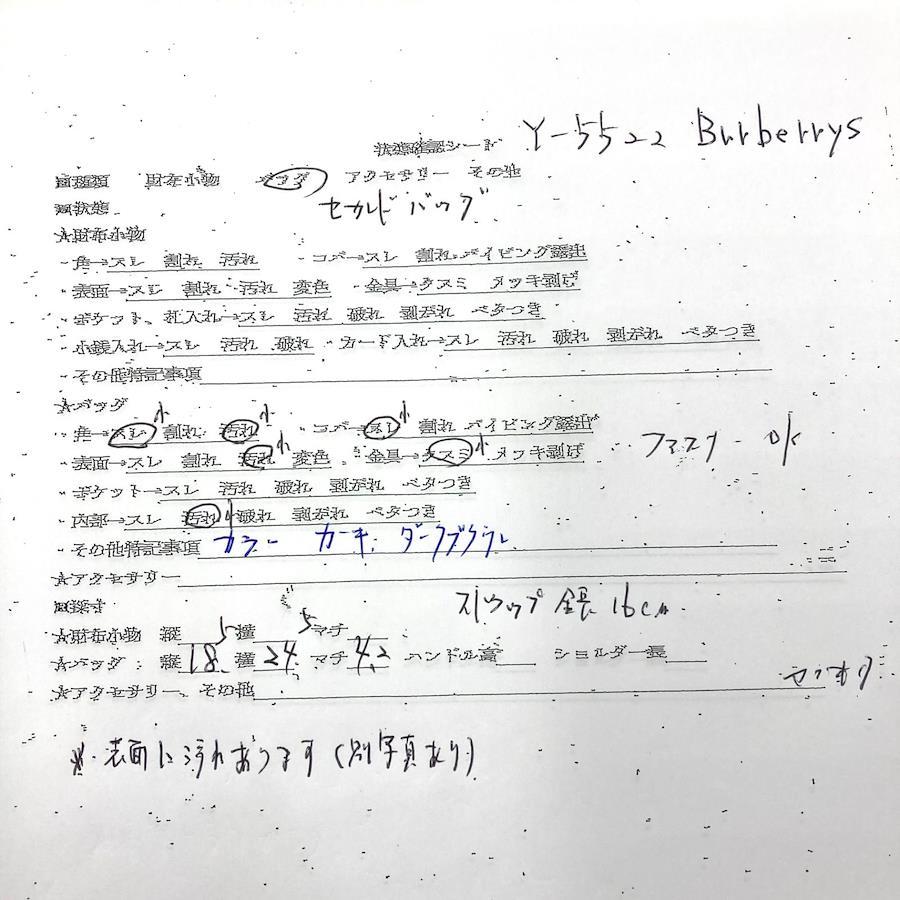 状態確認シート Y-5522 Burberrys
□種類 財布小物 バッグ アクセサリー その他
□状態 セカンドバッグ
☆財布小物
・角→スレ 割れ 汚れ ・コバ→スレ 割れ パイピング露出
・表面→スレ 割れ 汚れ 変色 ・金具→クスミ メッキ剥げ
・ポケット、札入れ→スレ 汚れ 破れ 剥がれ ベタつき
・小銭入れ→スレ 汚れ 破れ ・カード入れ→スレ 汚れ 破れ 剥がれ ベタつき
・その他特記事項
☆バッグ
・角→スレ小 割れ 汚れ小 ・コバ→スレ小 割れ パイピング露出
・表面→スレ 割れ 汚れ小 変色 ・金具→クスミ小 メッキ剥げ ・ファスナー OK
・ポケット→スレ 汚れ 破れ 剥がれ ベタつき
・内部→スレ 汚れ小 破れ 剥がれ ベタつき
・その他特記事項 カラー カーキ、ダークブラウン
☆アクセサリー
□採寸 ストラップ 全長 16cm
☆財布小物 縦 横 マチ
☆バッグ:縦18.5 横24.5 マチ4.2 ハンドル高 ショルダー長
☆アクセサリー、その他
※表面に汚れあります(別写真あり)